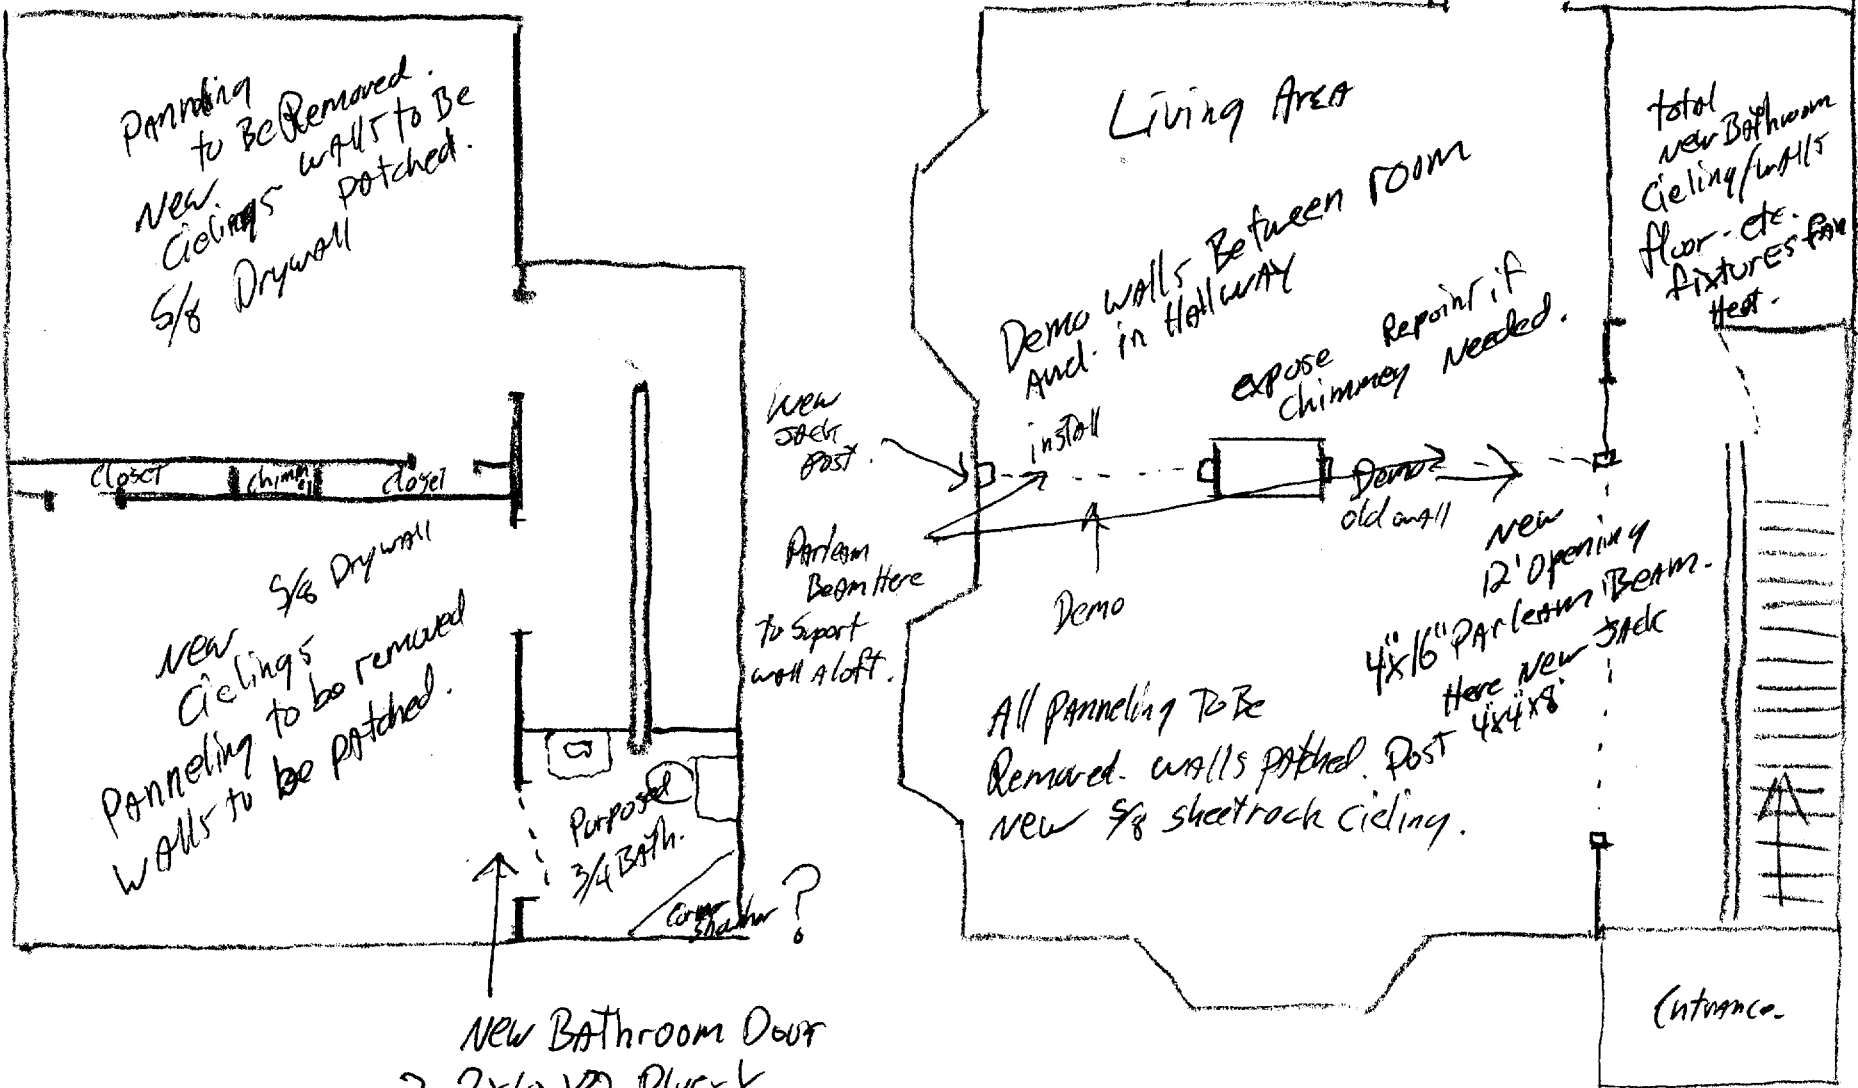 PANNeling
to Be Removed.
walls to Be
patched.
New
Cielings
5/8 Drywall
closet
chimney
closet
5/8 Drywall
New
Cielings
PANNeling to be removed
walls to be patched.
Purposed
3/4 BAth.
Corner
Shower
?
New BAthroom Door
Living AreA
Demo wAlls Between room
And in HallwAY
expose Repoint if
Chimney Needed.
install
New
JACK
Post.
Demo
old wall
Parleam
BeAm Here
to Suport
wall Aloft.
Demo
New
12' Opening
4"x16" PArleam BeAm.
Here New JAck
Post 4"x4"x8'
All PANNeling To Be
Removed. wAlls patched.
New 5/8 sheetrock Cieling.
total
New BAthroom
Cieling/wAlls
floor-etc.
fixtures fan
Heat.
Entrance.